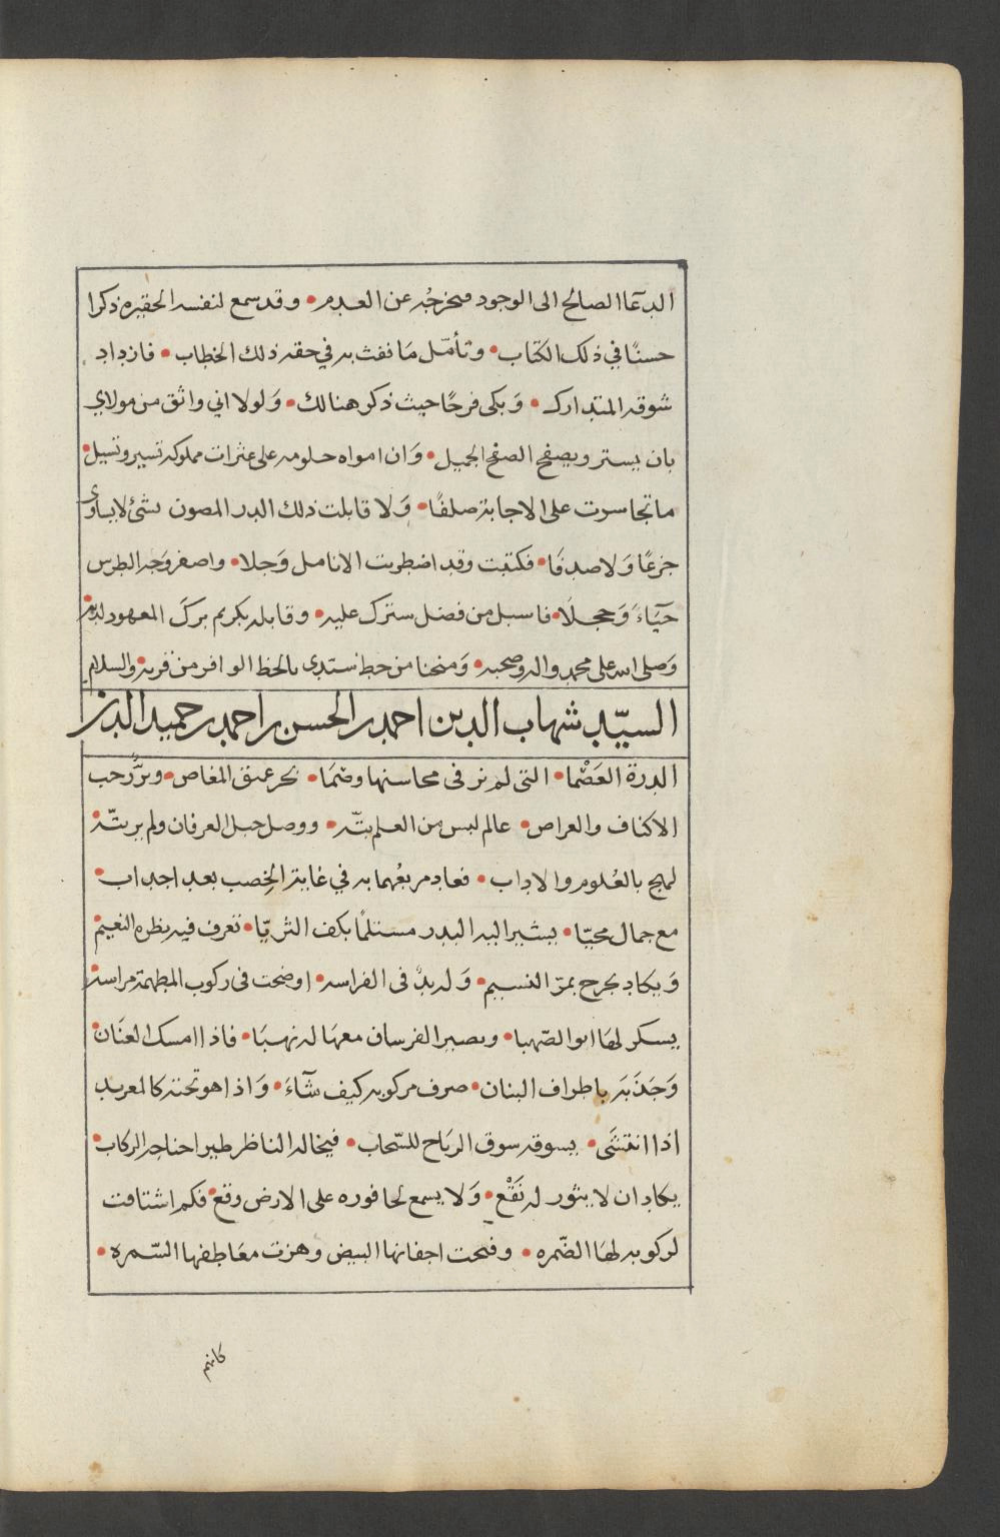 الدعآ الصالح الى الوجود مخرجُه عن العدم • وقد سمع لنفسه الحقيره ذكرا
حسنًا في ذلك الكتاب • وتأمّل مَا نفث به في حقه ذلك الخطاب • فازداد
شوقه المتدارك • وَبكى فرحًا حيث ذكر هنالك • وَلولا اني واثق من مولاي
بان يستر ويصفح الصفح الجميل • وَان امواه حلومه على عثرات مملوكه تسير وتسيل •
ما تجاسرت على الاجابة صلفًا • وَلا قابلت ذلك الدر المصون بشئ لا يساوى
جزعًا وَلا صدفًا • فكتبت وقد اضطربت الانامل وَجلا • واصفر وَجه الطرس
حيَآءً وَخجلًا • فاسبل من فضل سترك عليه • وقابله بكريم برك المعهود لديه •
وَصلى الله على محمد واله وصحبه • وَمنحنا من حظ نستدى بالحظ الوافر من قربه • والسلام
السيّد شهاب الدين احمد بن الحسن بن احمد بن حميد الدين
الدرة العَصْما • التى لم نر فى محاسنها وصْمَا • بحر عمق المغاص • وبرٌّ رحب
الاكناف والعراص • عالم لبس من العلم بتّه • ووصل حبل العرفان ولم يربتّه
لهج بالعُلوم والاداب • فعاد مربعُهما به في غاية الخِصب بعد اجداب •
مع جمال محيّا • يشير اليه البدر مستلمًا بكف الثريّا • تعرف فيه نظره النعيم
وَيكاد يجرح بمرّ النسيم • وَله يدٌ فى الفراسه • اوضحت فى ركوب المطهمة مراسه •
يسكر لهَا ابو الصّهبا • ويصير الفرسان معهَا له نهبَا • فاذا امسك العنَان •
وَجَذبَهَ باطراف البنان • صرف مركوبه كيف شآءَ • وَاذا هو تحته كالمعربد
اذا انتشَى • يسوقه سوق الريَاح للسّحاب • فيخاله الناظر طيرا جناحه الركاب •
يكاد ان لا يثور له نَقْع • وَلا يسمع لحافوره على الارض وقع • فكم اشتاقت
لركوبه لهَا الضّمره • وفتحت اجفانها البيض وهزت معَاطفها السّمره •
كانهم